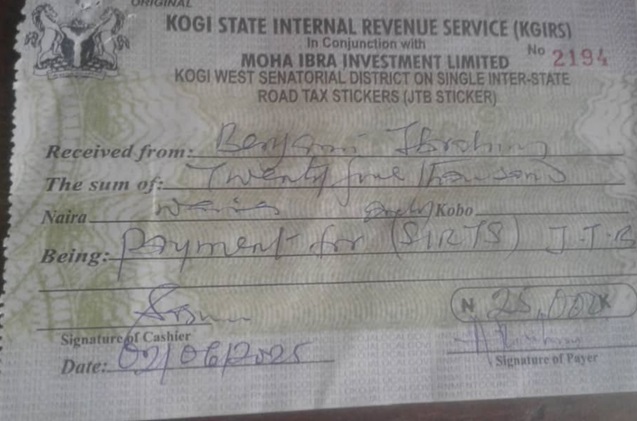 ORIGINAL
KOGI STATE INTERNAL REVENUE SERVICE (KGIRS)
In Conjunction with
MOHA IBRA INVESTMENT LIMITED No 2194
KOGI WEST SENATORIAL DISTRICT ON SINGLE INTER-STATE
ROAD TAX STICKERS (JTB STICKER)
Received from: Ibrahim
The sum of: Twenty five thousand
Naira Kobo
Being: Payment for (SIRTS) J.T.B
N 25,000 K
Signature of Cashier
Signature of Payer
Date: 02/06/2025